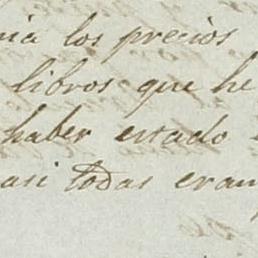 nia los precios
libros que he
haber estado
asi todas eran